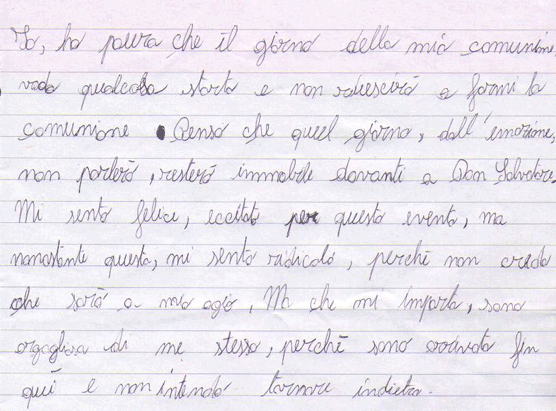 Io, ho paura che il giorno della mia comunione,
vada qualcosa storto e non riuscirò a farmi la
comunione. Penso che quel giorno, dall'emozione,
non parlerò, resterò immobile davanti a Don Salvatore.
Mi sento felice, eccitato per questo evento, ma
nonostante questo, mi sento ridicolo, perchè non credo
che sarò a mio agio, Ma che mi importa, sono
orgoglioso di me stesso, perchè sono arrivato fin
quì e non intendo tornare indietro.